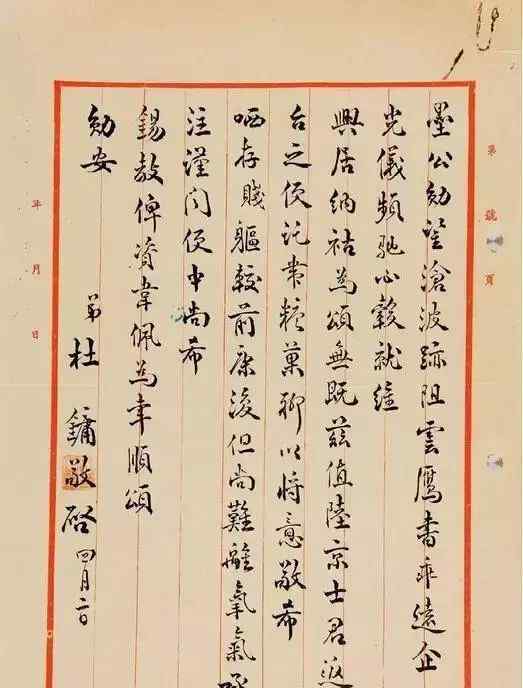 第 號 頁
墨公勛鑒滄波跡阻雲鴈書乖遠企
光儀頻馳心轂就維
興居納祜為頌無既茲值陸京士君返
台之便託帶糖菓聊以將意敬希
哂存賤軀較前康復但尚難離氧氣承
注謹聞便中尚希
錫教俾資韋佩為幸順頌
勛安
弟杜鏞敬啓四月二日
年 月 日